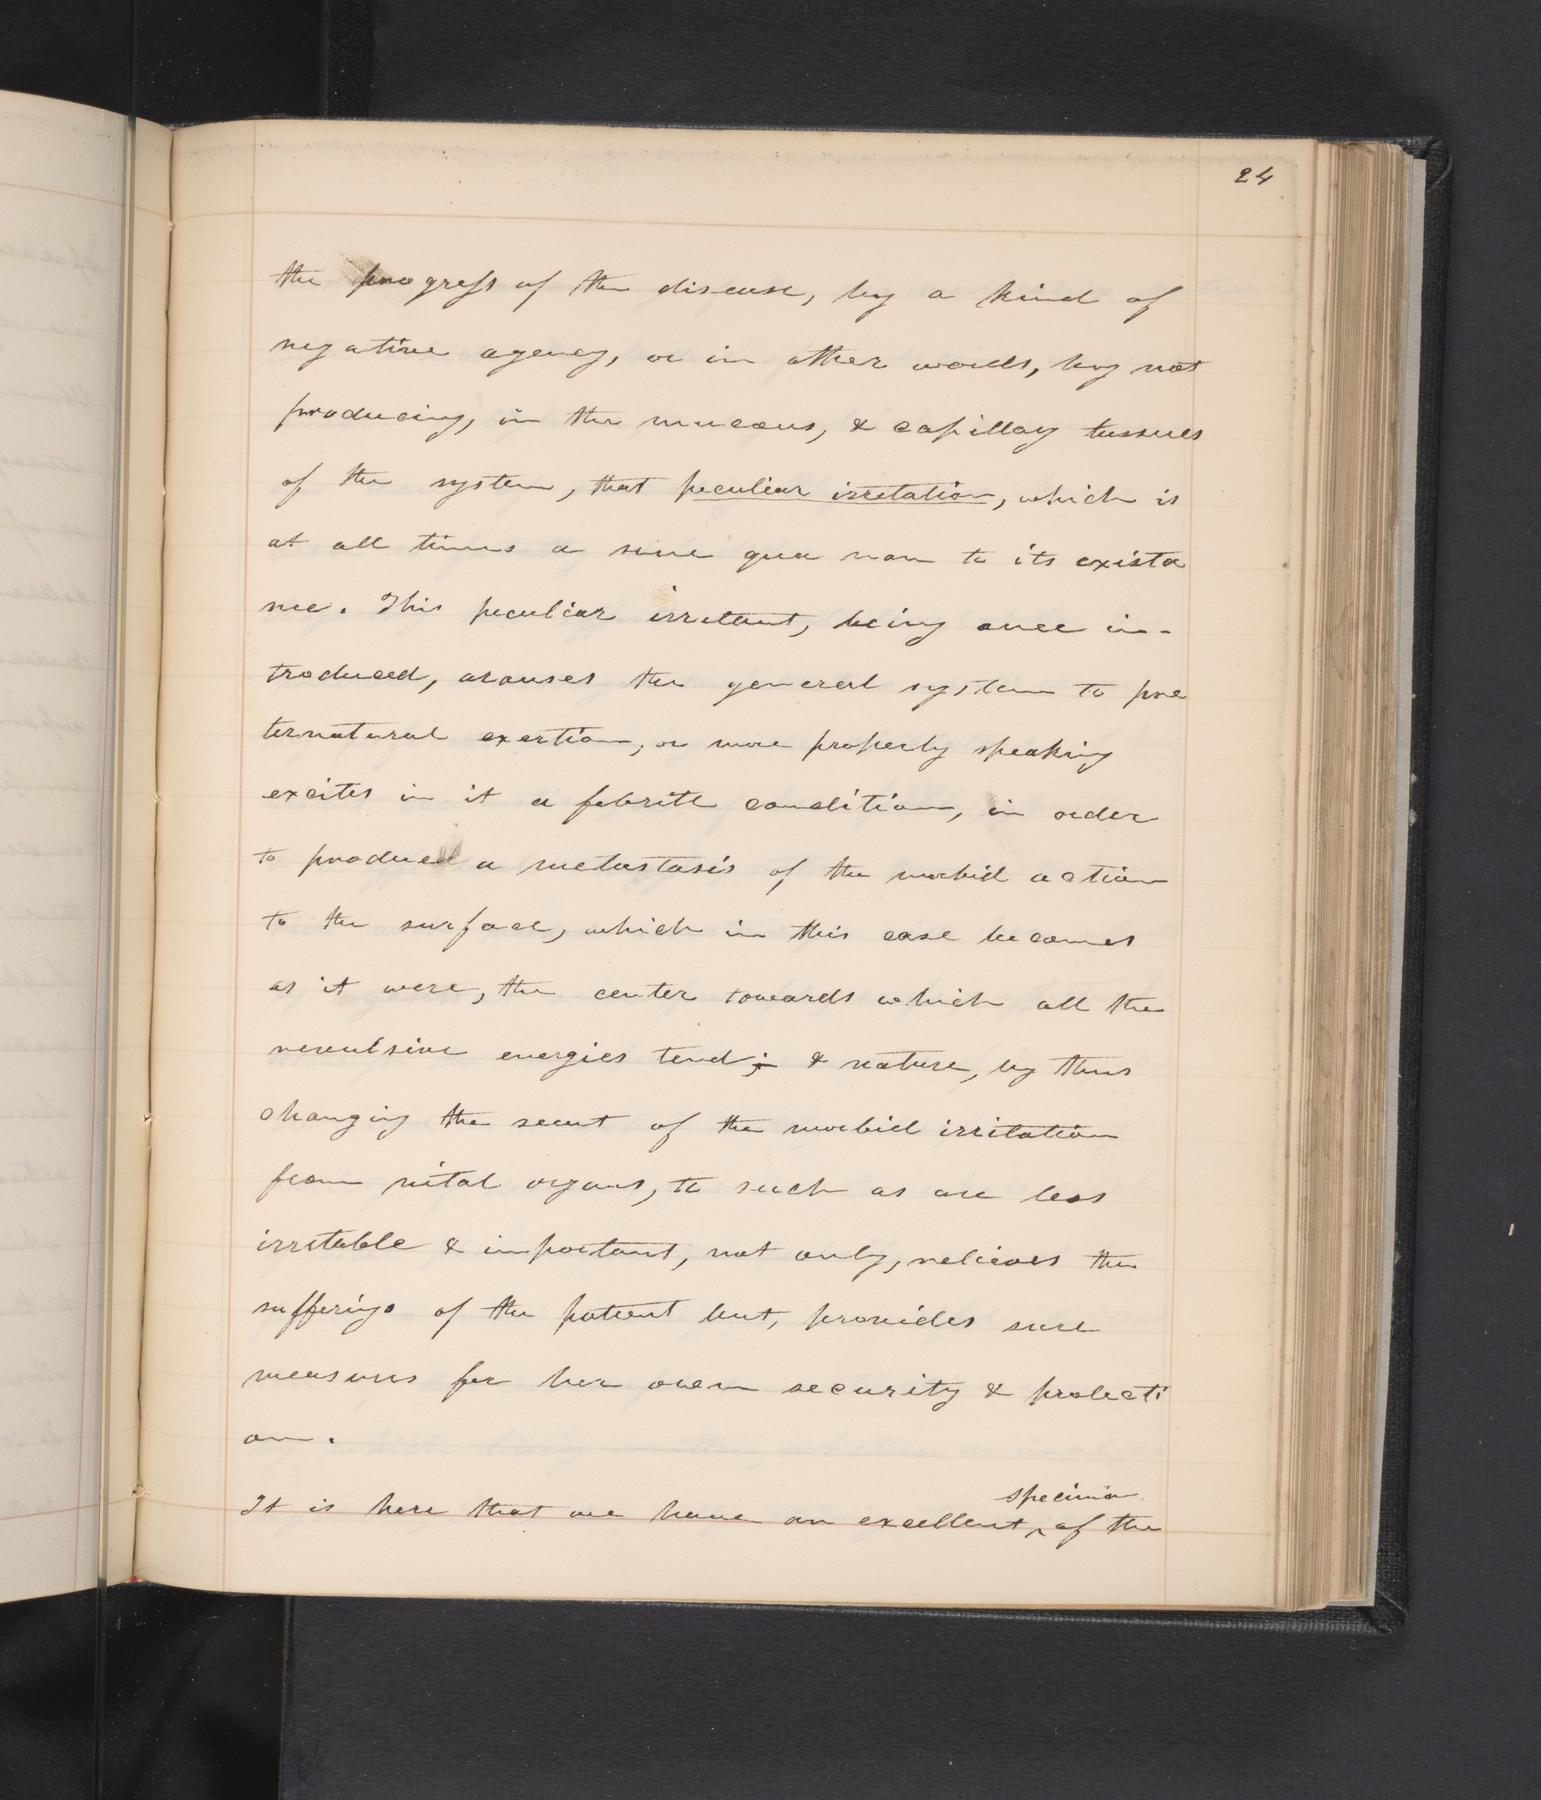 24
the progress of the disease, by a kind of
negative agency, or in other words, by not
producing, in the mucous, & capillay tussues
of the system, that peculiar irretation, which is
at all times a sine qua non to its exista
nce. This peculiar irretant, being once in-
troduced, arouses the general system to pre
ternatural exertion, or more properly speaking
excites in it a febrile condition, in order
to produce a metastasis of the morbid action
to the surface, which in this case becomes
as it were, the center towards which all the
revulsive energies tend; & nature, by thus
changing the seeut of the morbid irritation
from vital organs, to such as are less
irritable & important, not only, relieves the
sufferings of the patient but, provides sure
measures for her owen security & protecti
on.
specimin
It is here that we have an excellent ‸ of the